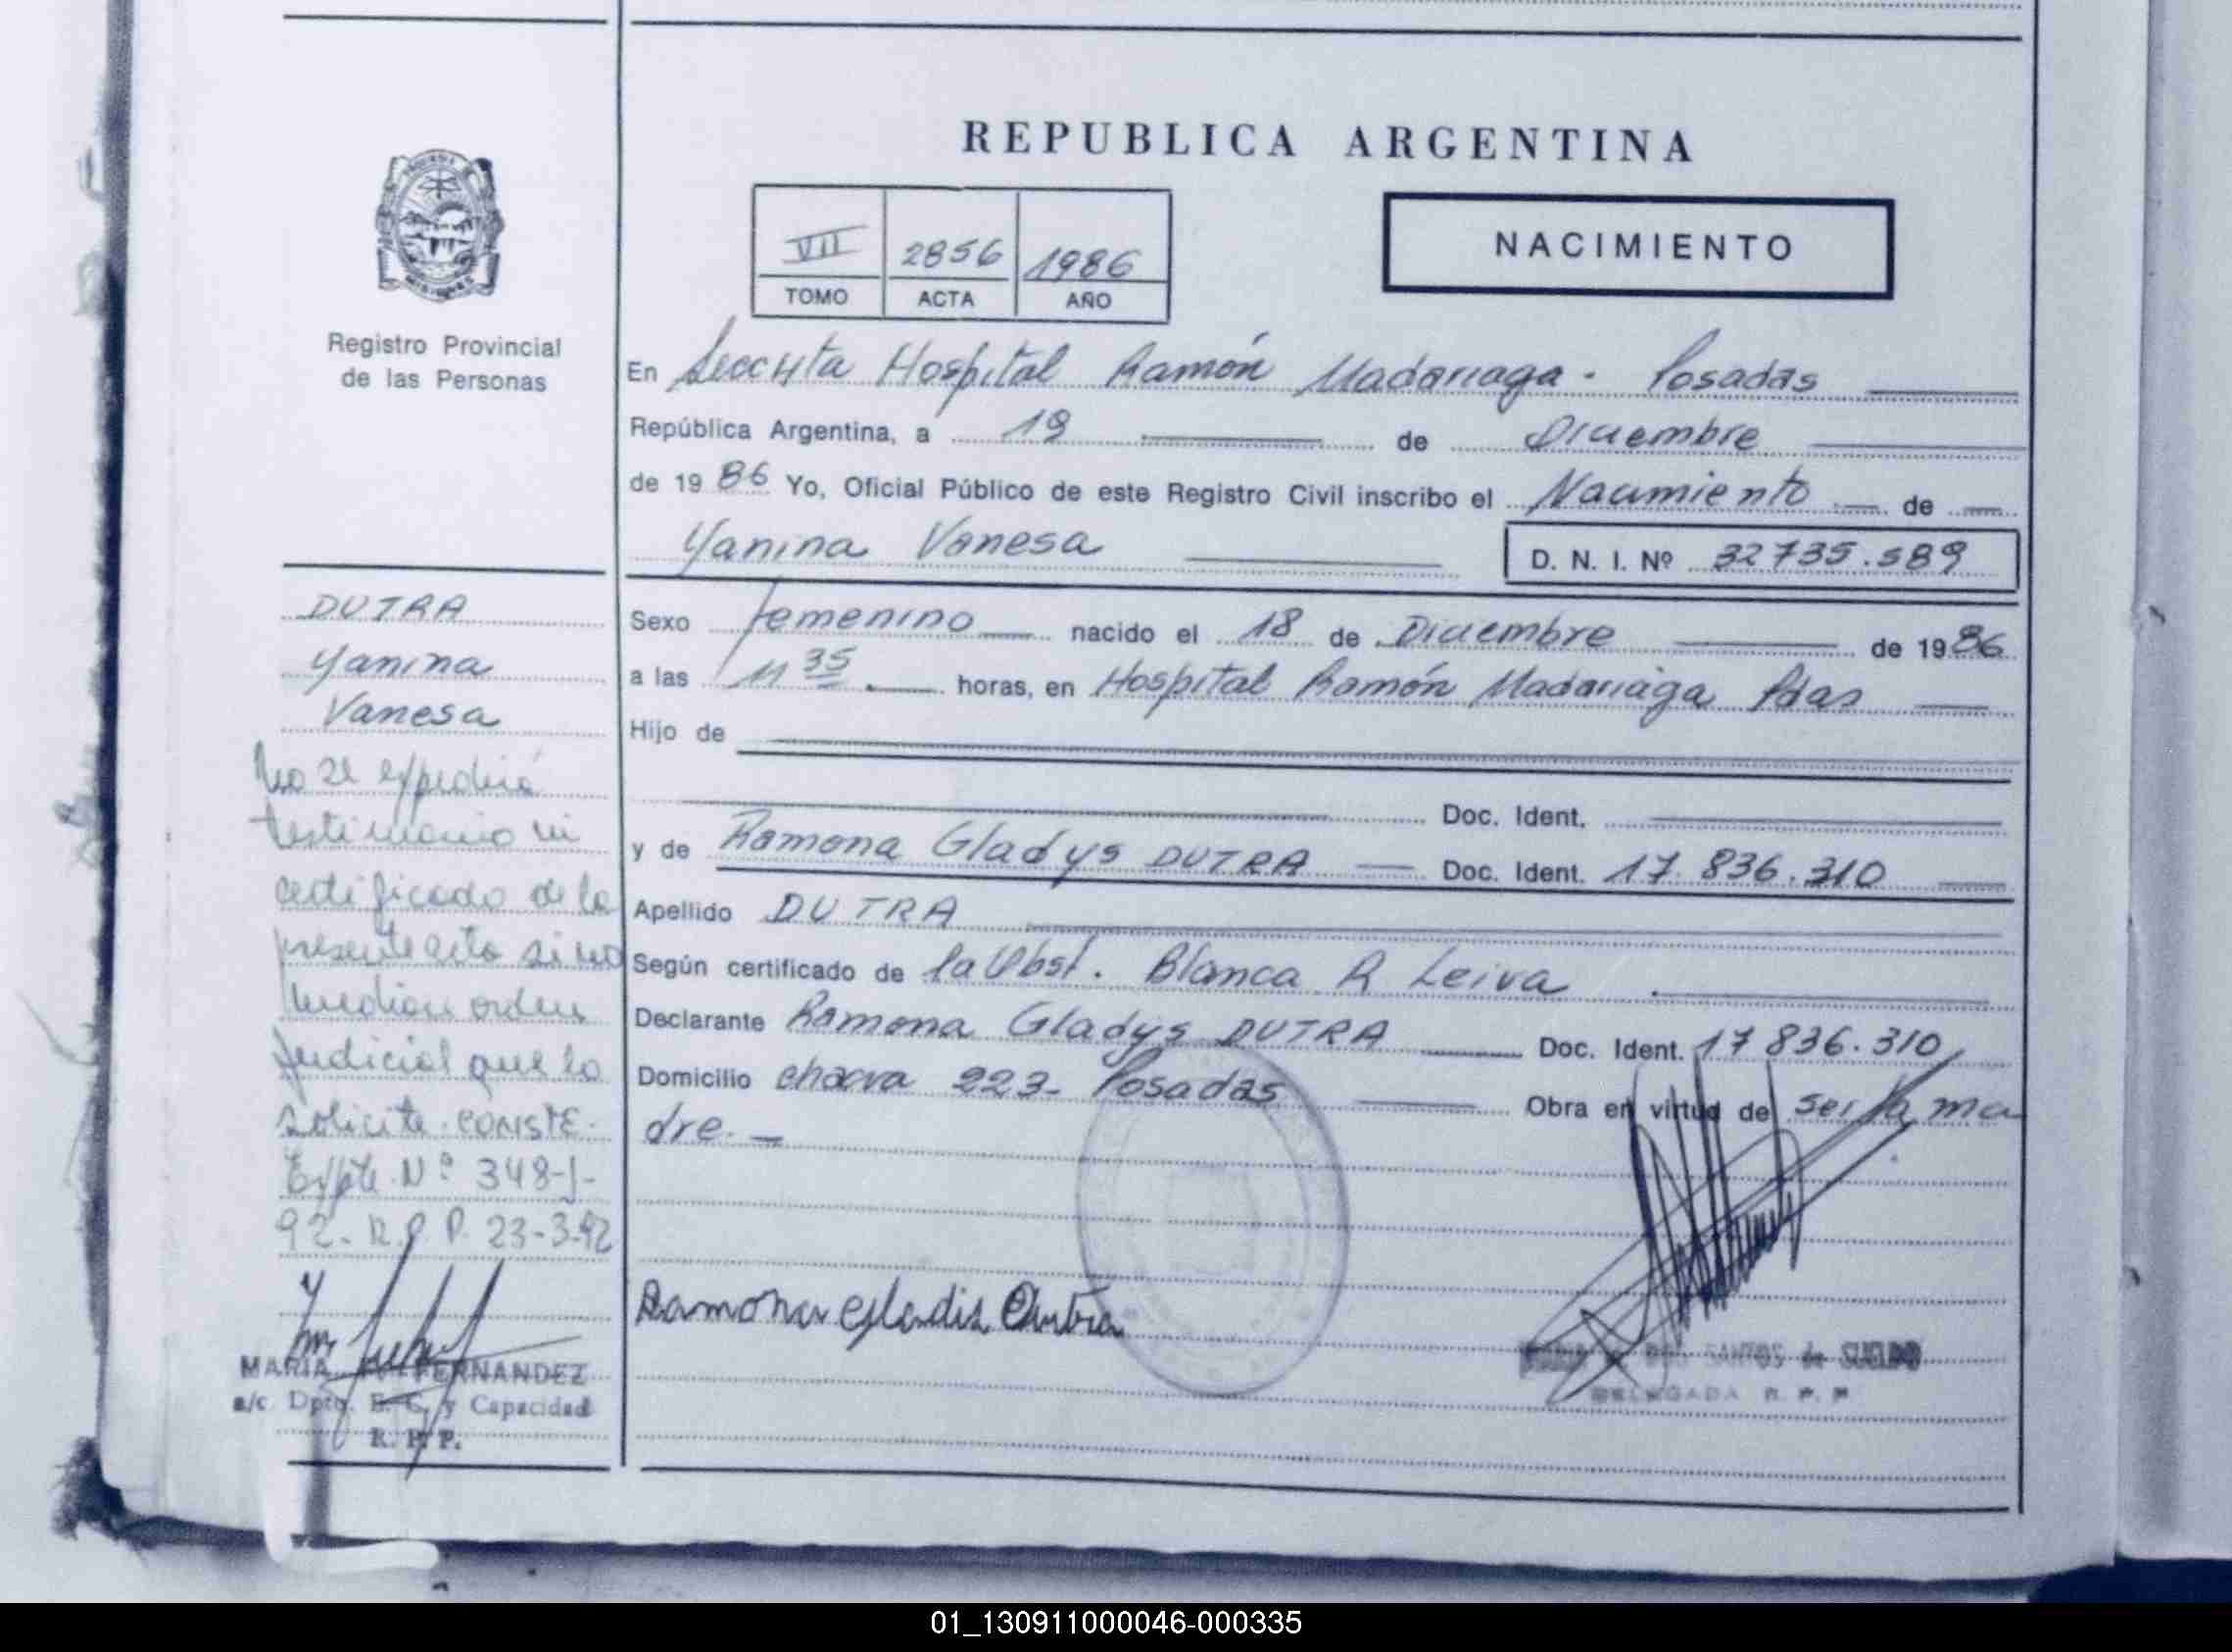 REPUBLICA ARGENTINA
VII 2856 1986
TOMO ACTA AÑO
NACIMIENTO
Registro Provincial
de las Personas
En Seccsita Hospital Ramón Madariaga - Posadas
República Argentina, a 19 de Diciembre
de 19 86 Yo, Oficial Público de este Registro Civil inscribo el Nacimiento de
Yanina Vanesa D. N. I. Nº 32735.589
Sexo femenino nacido el 18 de Diciembre de 19 86
a las 11 35 horas, en Hospital Ramón Madariaga Pdas
Hijo de
Doc. Ident.
y de Ramona Gladys DUTRA Doc. Ident. 17.836.310
Apellido DUTRA
Según certificado de la Obst. Blanca R Leiva
Declarante Ramona Gladys DUTRA Doc. Ident. 17 836.310
Domicilio chacra 223- Posadas Obra en virtud de ser la ma
dre. -
Ramona Gladis Dutra
DOS SANTOS de
DELEGADA R. P. P
DUTRA
Yanina
Vanesa
No se expedirá
testimonio ni
certificado de la
presente acta si no
median orden
Judicial que lo
solicite. CONSTE.
Expte. Nº 348-J-
92- R.P.P. 23-3-92
MARIA FERNANDEZ
a/c Dpto. E. C. y Capacidad
R. P. P.
01_130911000046-000335